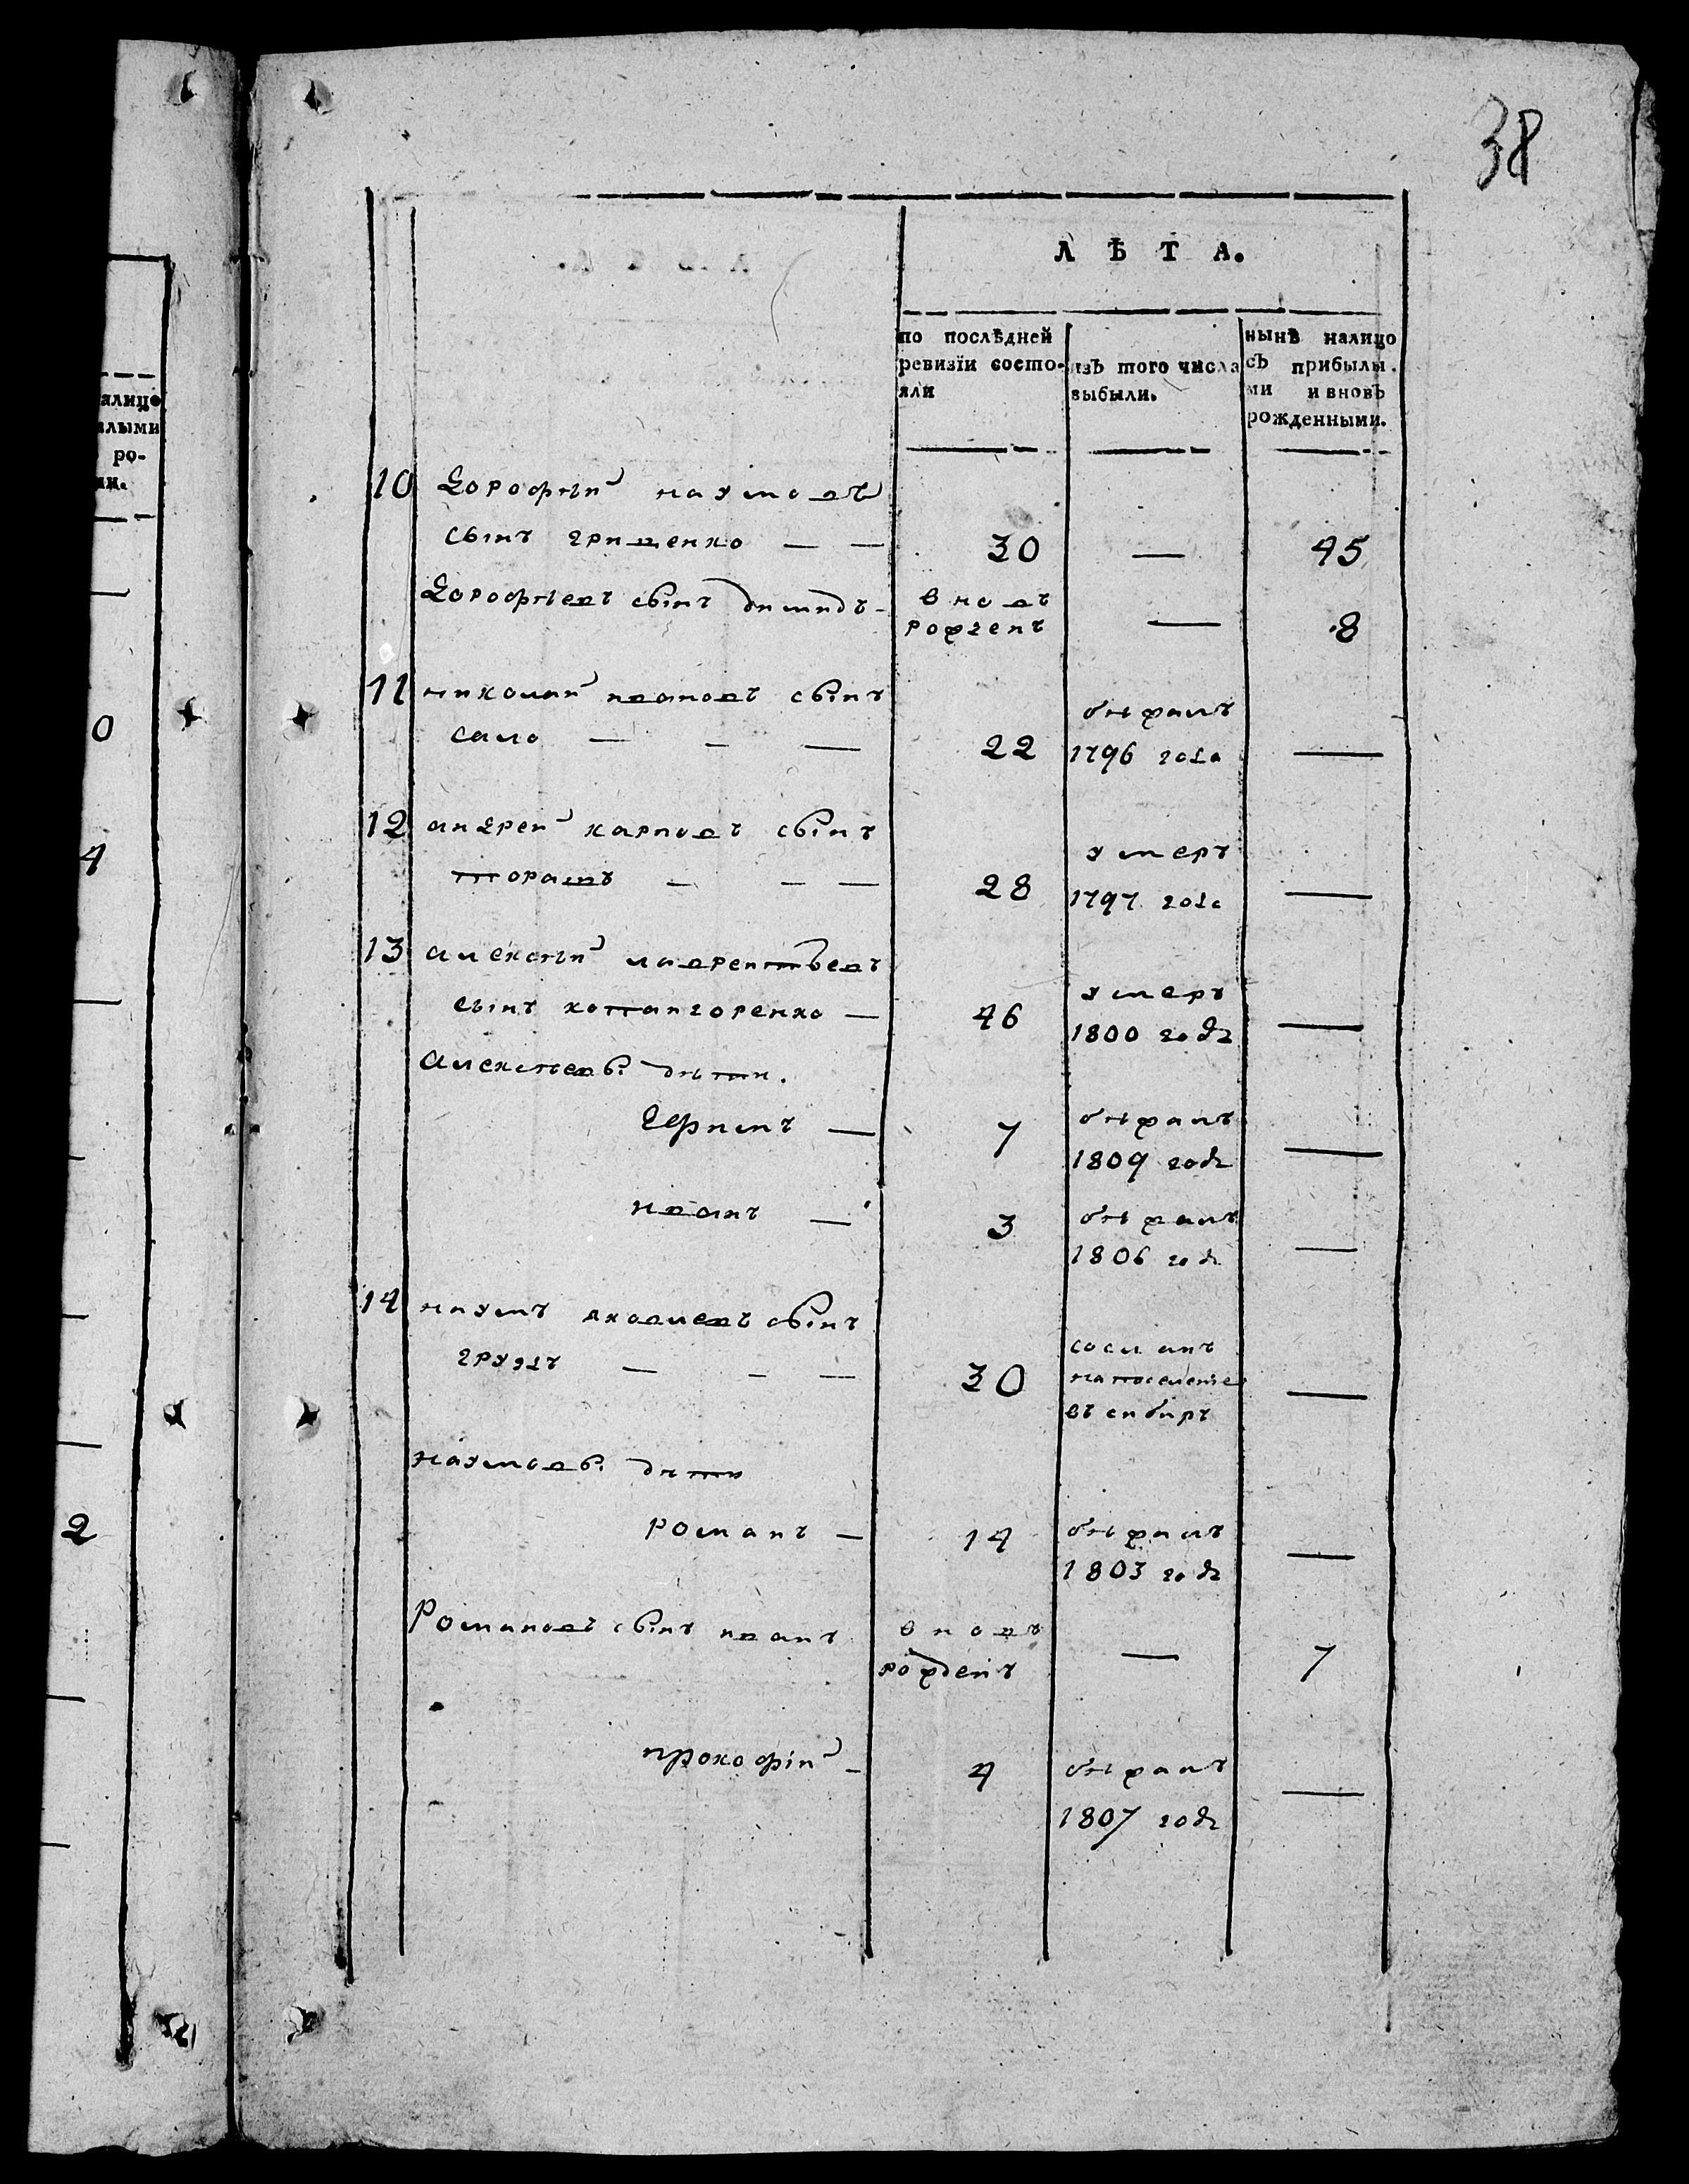 38
ЛѢТА.
по послѣдней ревизїи состояли
изъ того числа выбыли.
нынѣ налицо съ прибылыми и вновь рожденными.
10 Дорофѣй наумовъ
сынъ грищенко — — 30 — 45
Дорофѣевъ сынъ димидъ - вновь рожденъ — 8
11 николай ивановъ сынъ
сало — — — 22 бѣжалъ 1796 года —
12 андрей карповъ сынъ
— — — 28 умеръ 1797 года —
13 алексѣй лаврентьевъ
сынъ — 46 умеръ 1800 годѣ —
алексѣевы дѣти.
Ефимъ — 7 бѣжалъ 1809 годѣ —
иванъ — 3 бѣжалъ 1806 годѣ —
14 наумъ яковлевъ сынъ
— — — 30 сосланъ на поселение въ сибирь —
наумовы дѣти
романъ — 14 бѣжалъ 1803 годѣ —
Романовъ сынъ иванъ вновь рожденъ — 7
прокофій - 4 бѣжалъ 1807 годѣ —